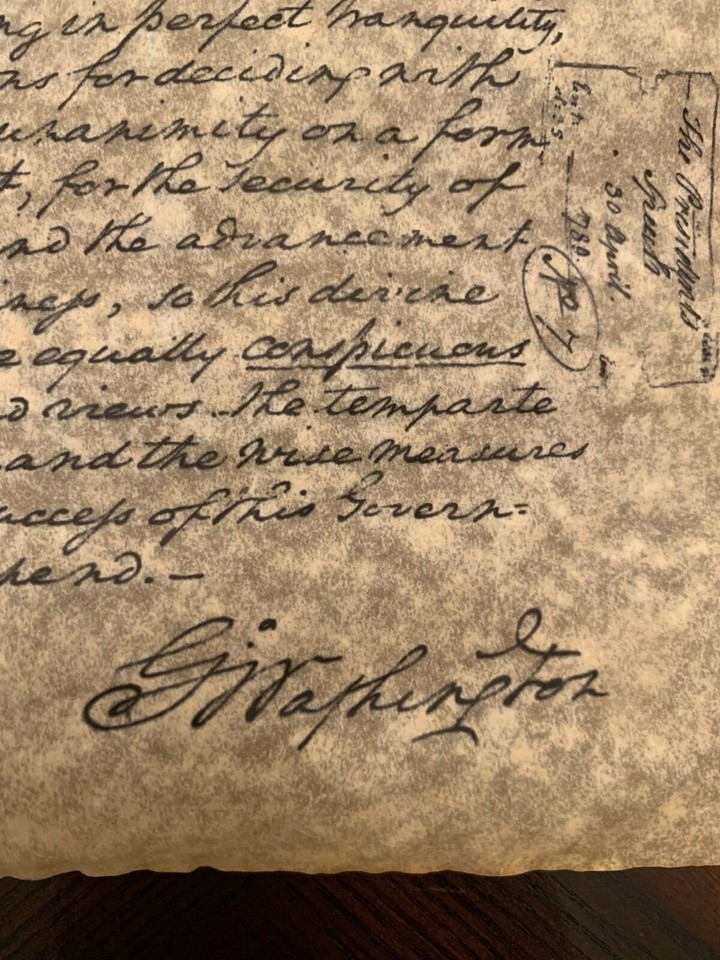 ng in perfect tranquility,
ns for deciding with
unanimity on a form
t, for the security of
and the advancement
ings, so this divine
e equally conspicuous
d views. the temparte
and the wise measures
uccess of this Govern=
pend.—
G. Washington
The Presidents
Speech
30 April.
789.
No 7